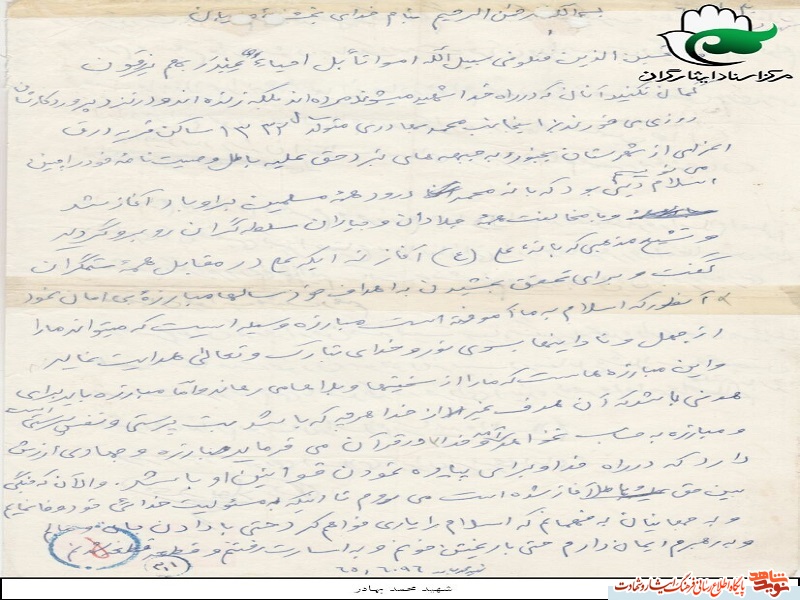 مرکز اسناد ایثارگران
بسم الله الرحمن الرحیم بنام خدای بخشنده مهربان
الذین قتلو فی سبیل الله امواتا بل احیاء عند ربهم یرزقون
گمان نکنید آنان که در راه خدا شهید میشوند مرده‌اند بلکه زنده‌اند و در نزد پروردگارشان
روزی می‌خورند اینجانب محمد بهادری متولد ۱۳۳۲ ساکن قریه
اعزامی از شهرستان بجنورد به جبهه‌های نبرد حق علیه باطل وصیت‌نامه خود را چنین
می‌نویسم
اسلام دینی بود که با نه محمد درود همه مسلمین بر او باد آغاز شد
و با مخالفت جلادان و جباران سلطه‌گران روبرو گردید
و تشیع مذهبی که با نه علی (ع) آغاز
در مقابل همه ستمگران
گفت و برای تحقق بخشیدن به اهداف خود سالها مبارزه بی‌امان نمود
آنطور که اسلام به ما آموخته است مبارزه وسیله ایست که میتواند ما را
از جهل و نادانیها بسوی نور و خدای تبارک و تعالی هدایت نماید
و این مبارزه هاست که ما را از سختیها و بلاها می‌رهاند و اما مبارزه باید برای
هدفی باشد که آن هدف غیر از خدا هر چه که باشد بت پرستی و نفس پرستی است
و مبارزه به حساب نخواهد آمد و خدا در قرآن می فرماید مبارزه و جهادی ارزش
دارد که در راه خدا و برای پیاده نمودن قوانین او باشد. والان که جنگی
بین حق و باطل آغاز شده است می روم تا اینکه به مسئولیت خدائی خود وفا نمایم
و به جهانیان بفهمانم که اسلام را یاری خواهم کرد حتی با دادن جان و مالم
و به رهبرم ایمان دارم حتی با ریختن خونم و به اسارت رفتنم و قطعه قطعه
۳۱۱
شهید محمد بهادر
نوید شاهد
پایگاه اطلاع رسانی فرهنگ ایثار و شهادت